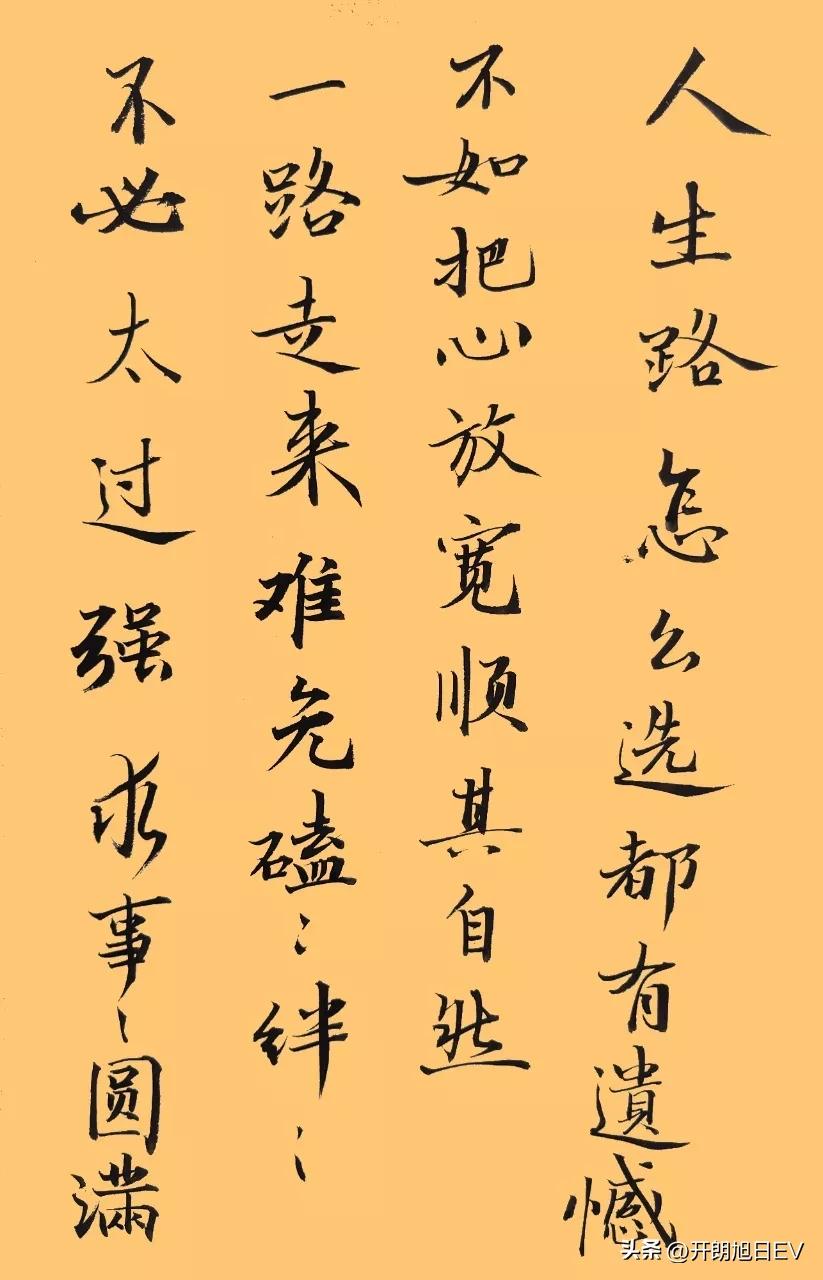 人生路怎么选都有遺憾
不如把心放宽顺其自然
一路走来难免磕〻绊〻
不必太过强求事〻圆满
头条@开朗旭日EV